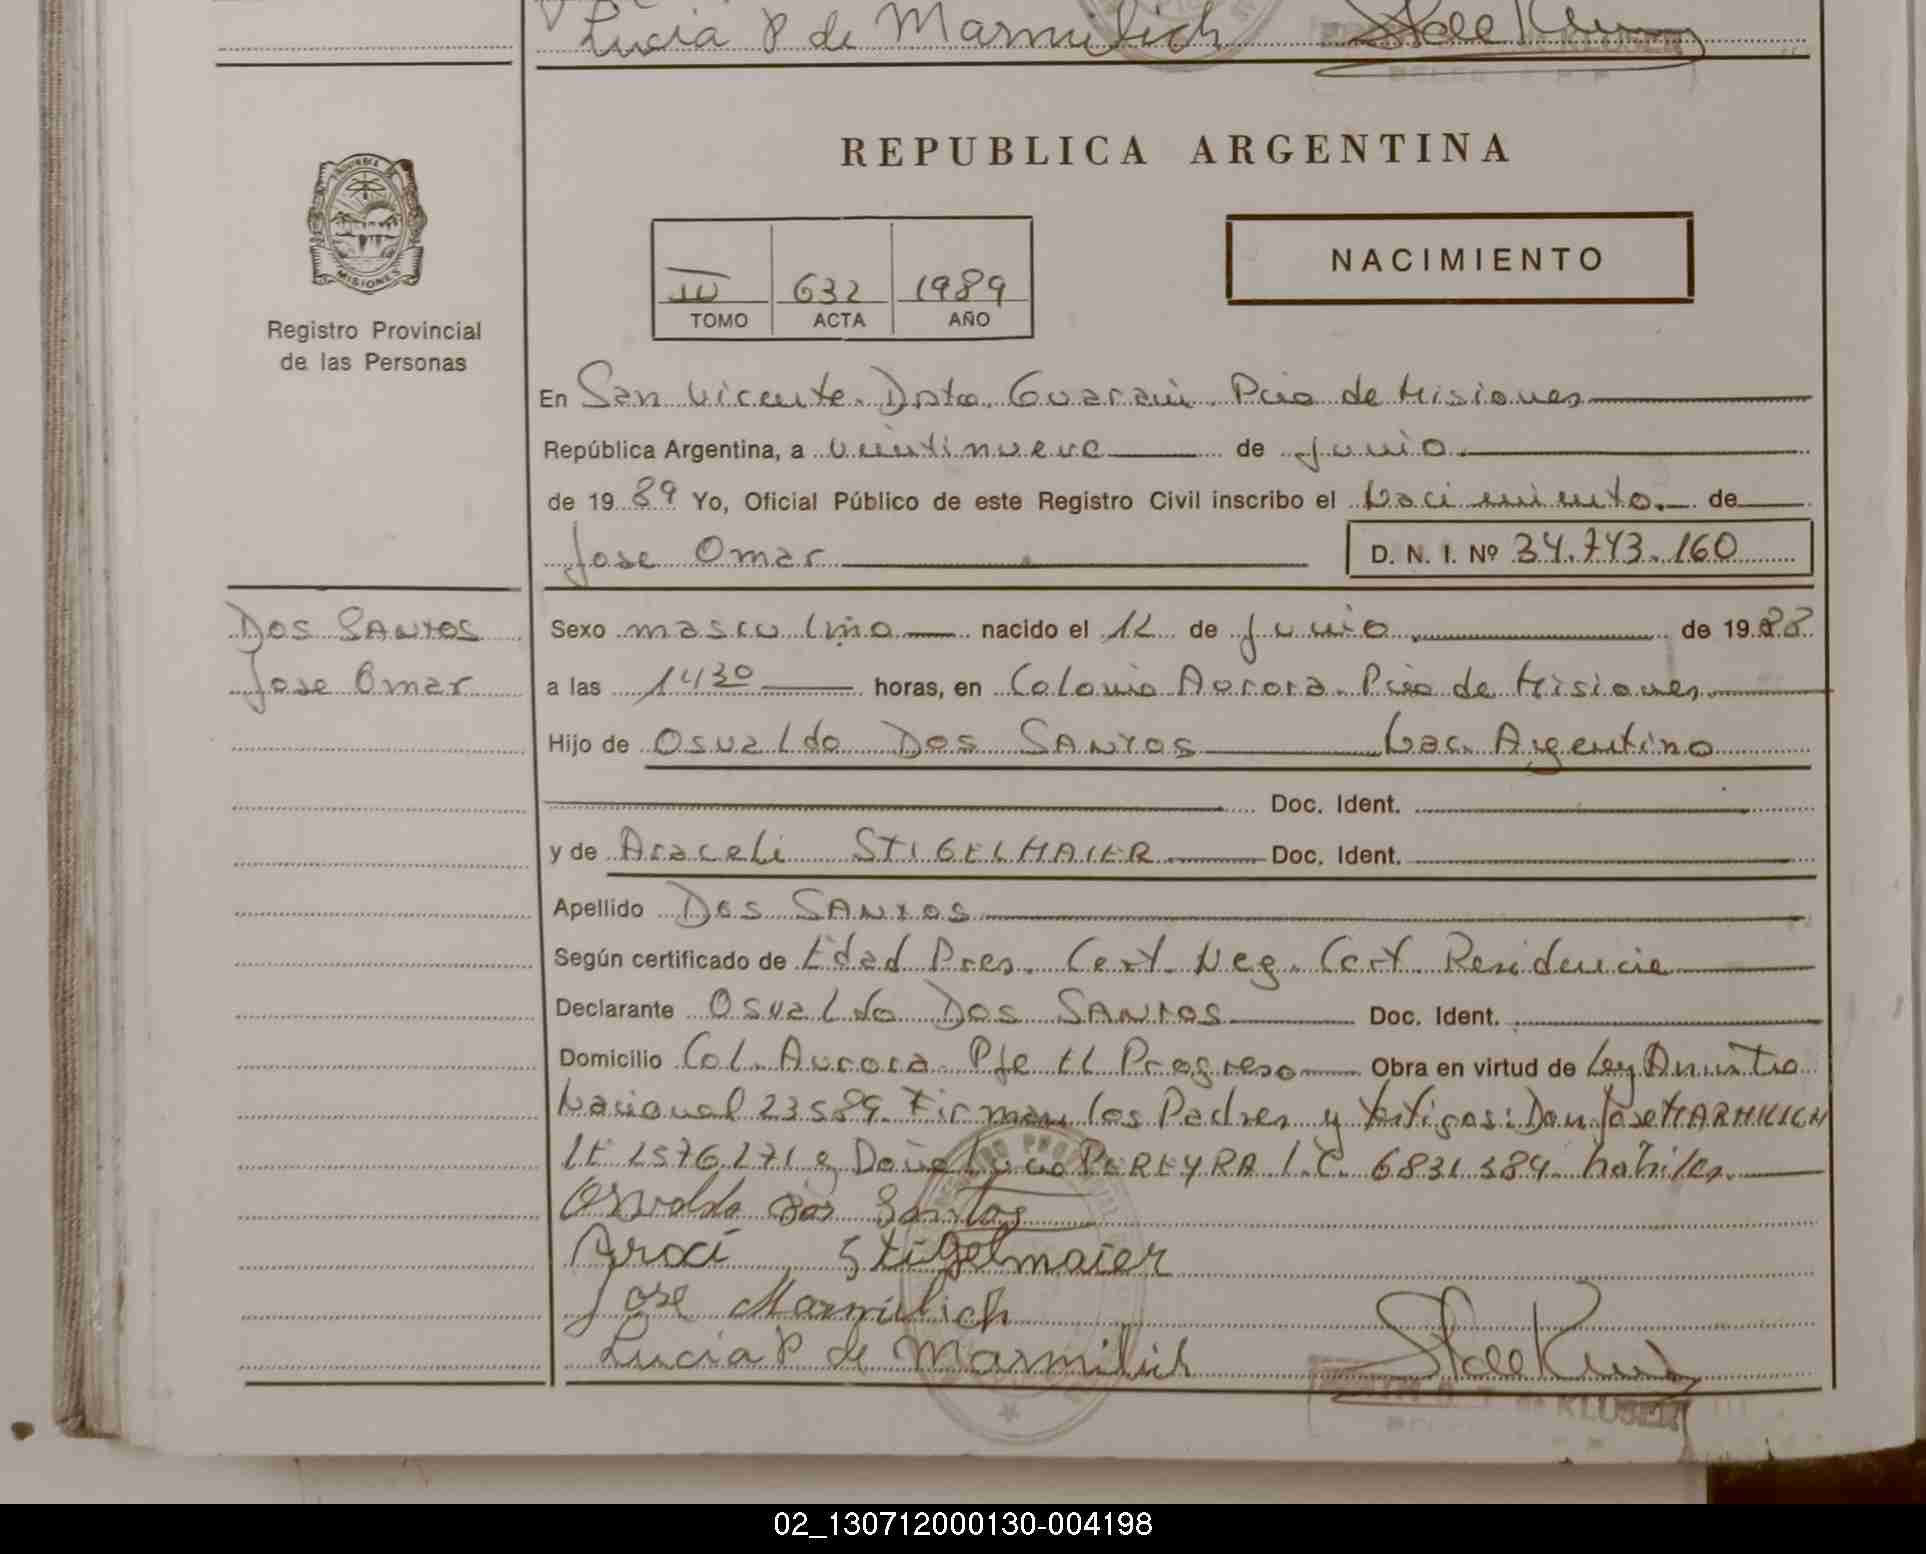 Lucia P de Marmilich
REPUBLICA ARGENTINA
MISIONES
Registro Provincial
de las Personas
632 1989
TOMO ACTA AÑO
NACIMIENTO
En San Vicente. Dpto. Guarani. Pcia de Misiones
República Argentina, a veintinueve de junio
de 1989 Yo, Oficial Público de este Registro Civil inscribo el Nacimiento. de
Jose Omar D. N. I. Nº 34.743.160
Dos SANTOS
Jose Omar
Sexo masculino nacido el 12 de junio de 1988
a las 1430 horas, en Colonia Aurora. Pcia de Misiones
Hijo de Osvaldo Dos SANTOS Nac. Argentino
Doc. Ident.
y de Araceli STIGELMAIER Doc. Ident.
Apellido Dos SANTOS
Según certificado de Edad Pres. Cert. Neg. Cert. Residencia
Declarante Osvaldo Dos SANTOS Doc. Ident.
Domicilio Col. Aurora. Pje El Progreso Obra en virtud de Ley Amnistia
Nacional 23589. Firman los Padres y testigos: Don Jose MARMILICH
y Doña Lucia PEREYRA L.C. habiles.
Osvaldo dos Santos
Araci Stigelmaier
Jose Marmilich
Lucia P de Marmilich
de KLUSER
02_130712000130-004198